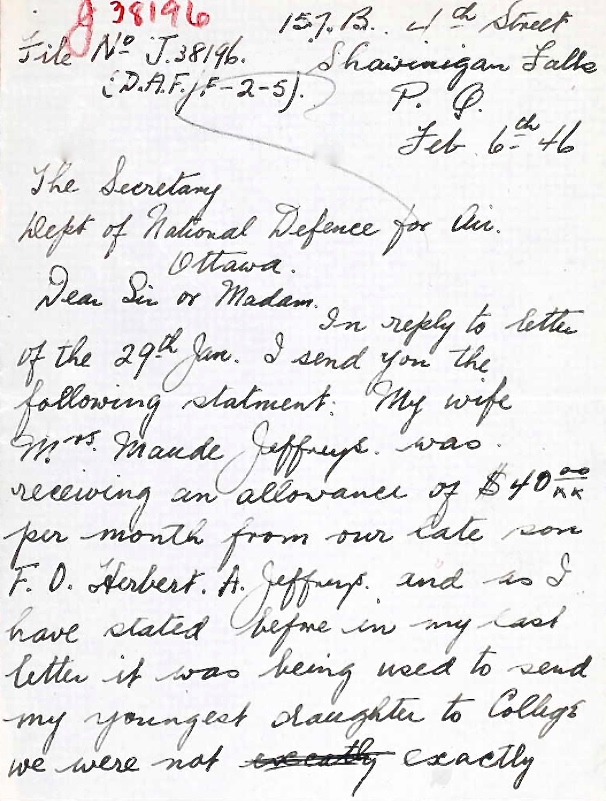 J 38196
157. B. 4th Street
File No J.38196. Shawinigan Falls
(D.A.F. F-2-5). P. Q.
Feb. 6th 46
The Secretary
Dept of National Defence for Air.
Ottawa.
Dear Sir or Madam.
In reply to letter
of the 29th Jan. I send you the
following statment: My wife
Mrs. Maude Jeffreys. was
receiving an allowance of $40 00/xx
per month from our late son
F. O. Herbert. A. Jeffreys. and as I
have stated before in my last
letter it was being used to send
my youngest daughter to College
we were not exactly